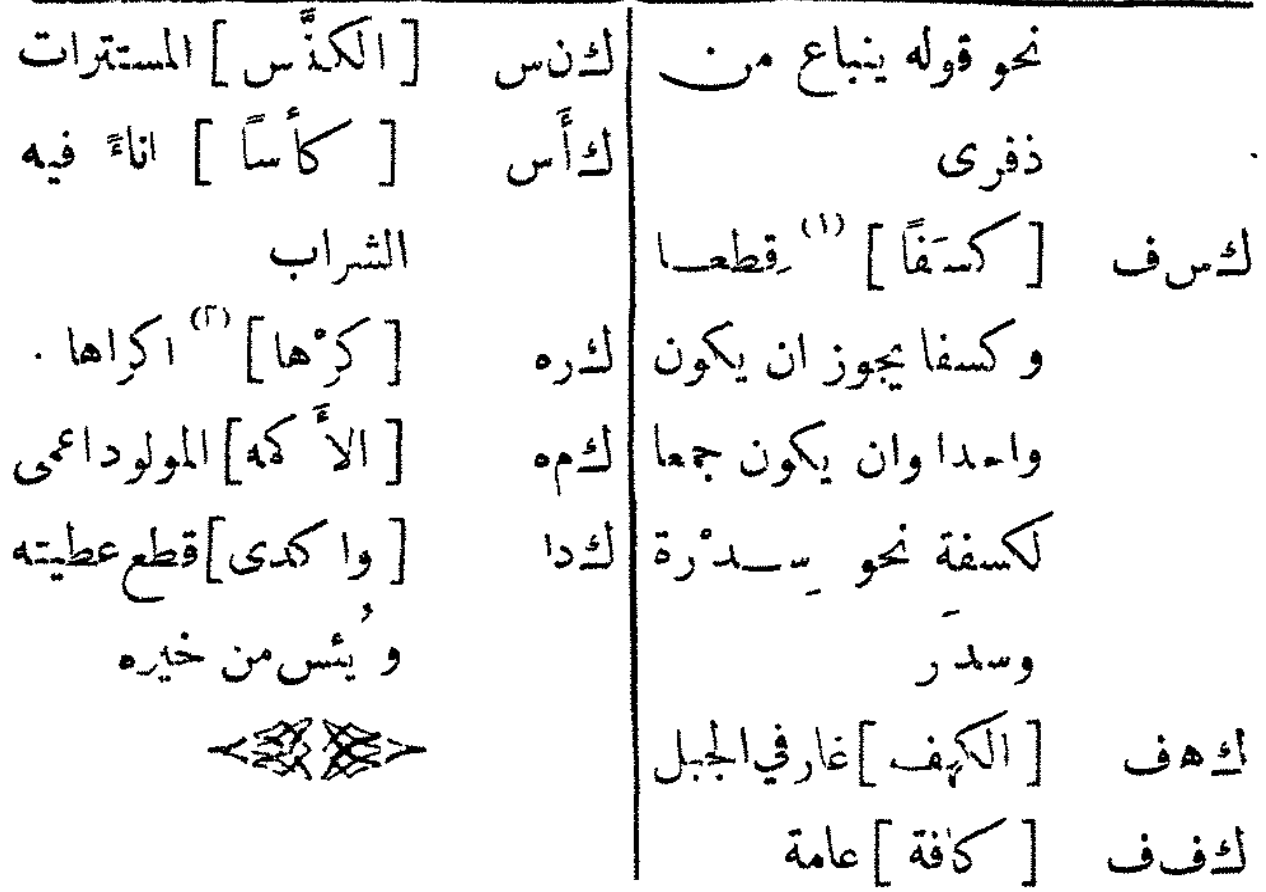 نحو قوله ينباع من
ذفرى
ك س ف [ كسَفاً ] (١) قِطعـا
و كسفا يجوز ان يكون
واحدا وان يكون جمعا
لكسفةٍ نحو سِـدْرة
وسدَر
ك ه ف [ الكهف ] غار في الجبل
ك ف ف [ كافة ] عامة
ك ن س [ الكنَّس ] المستترات
ك أَ س [ كأساً ] اناءً فيه
الشراب
ك ر ه [ كرْها ] (٢) اكراها .
ك م ه [ الاَّ كمه ] المولود اعمى
ك د ا [ وا كدى ] قطع عطيته
و يُئس من خيره